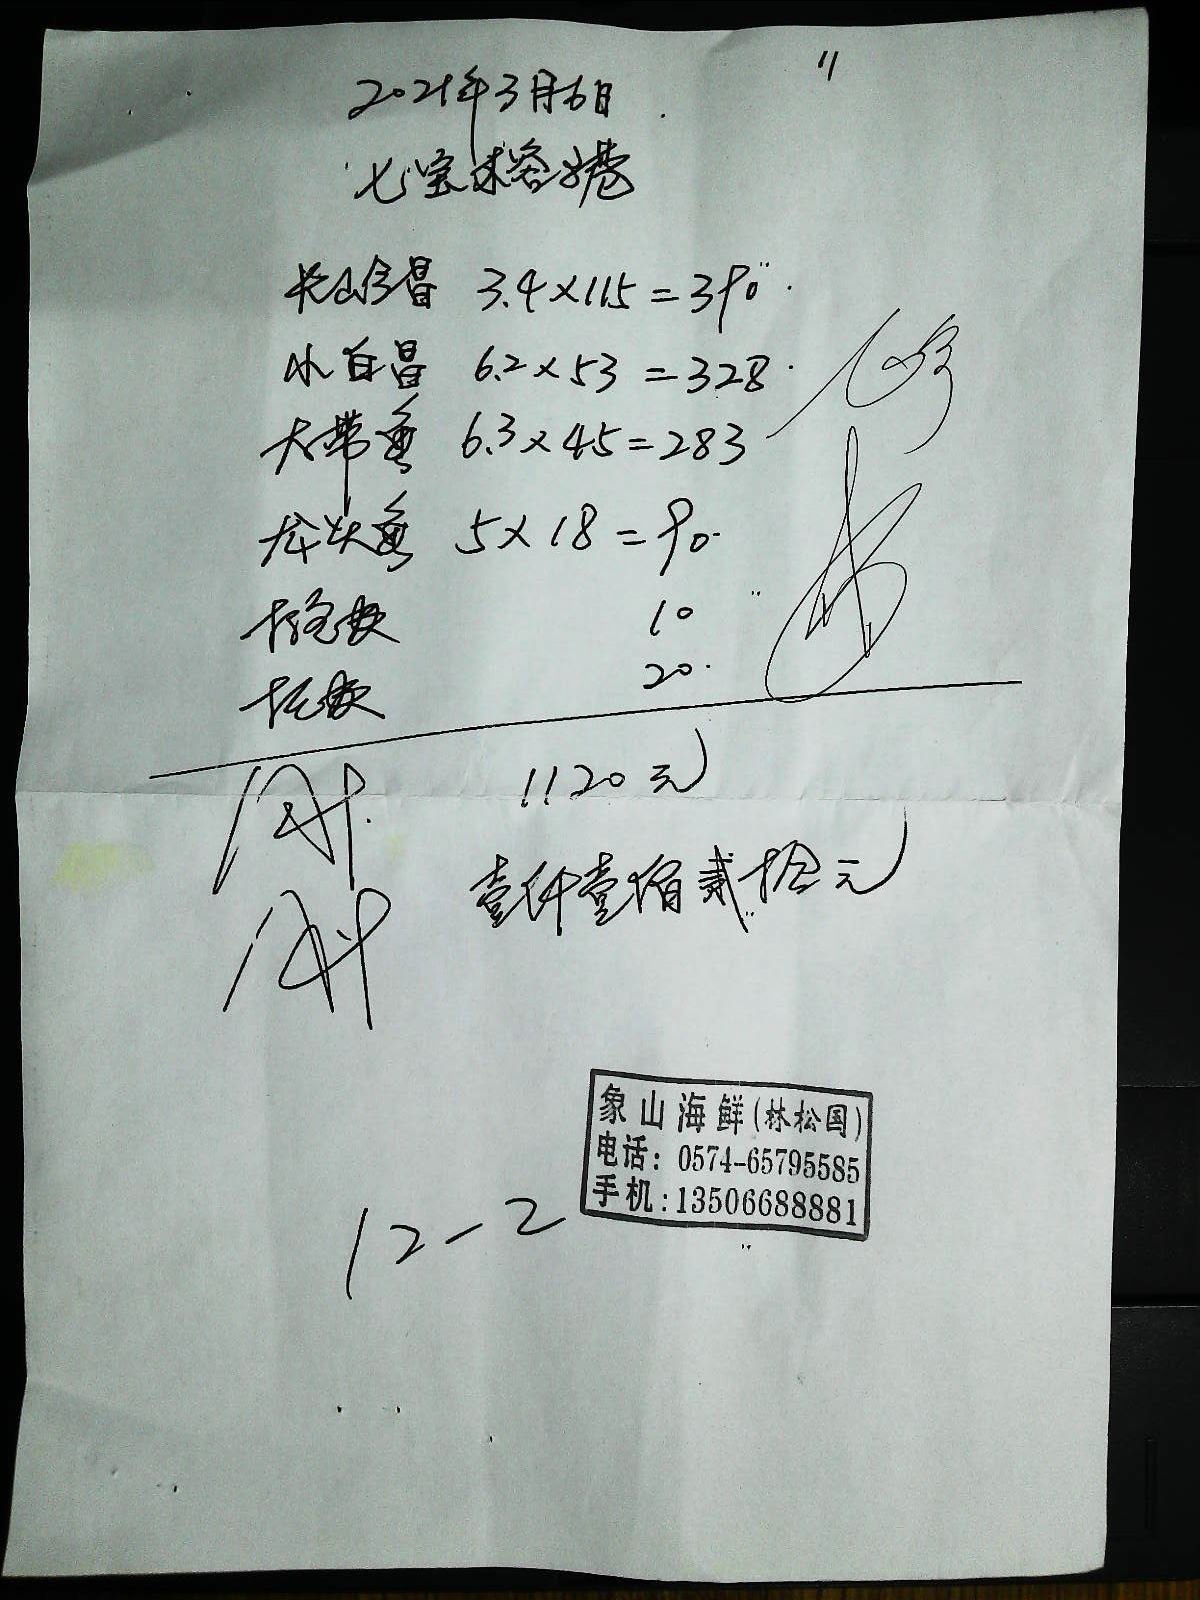 11
2021年3月6日
七宝来谷小巷
长山白昌 3.4×115=390
小白昌 6.2×53=328
大带鱼 6.3×45=283
龙头鱼 5×18=90
10
20
1120元
壹仟壹佰贰拾元
象山海鲜(林松国)
电话: 0574-65795585
手机:13506688881
12-2